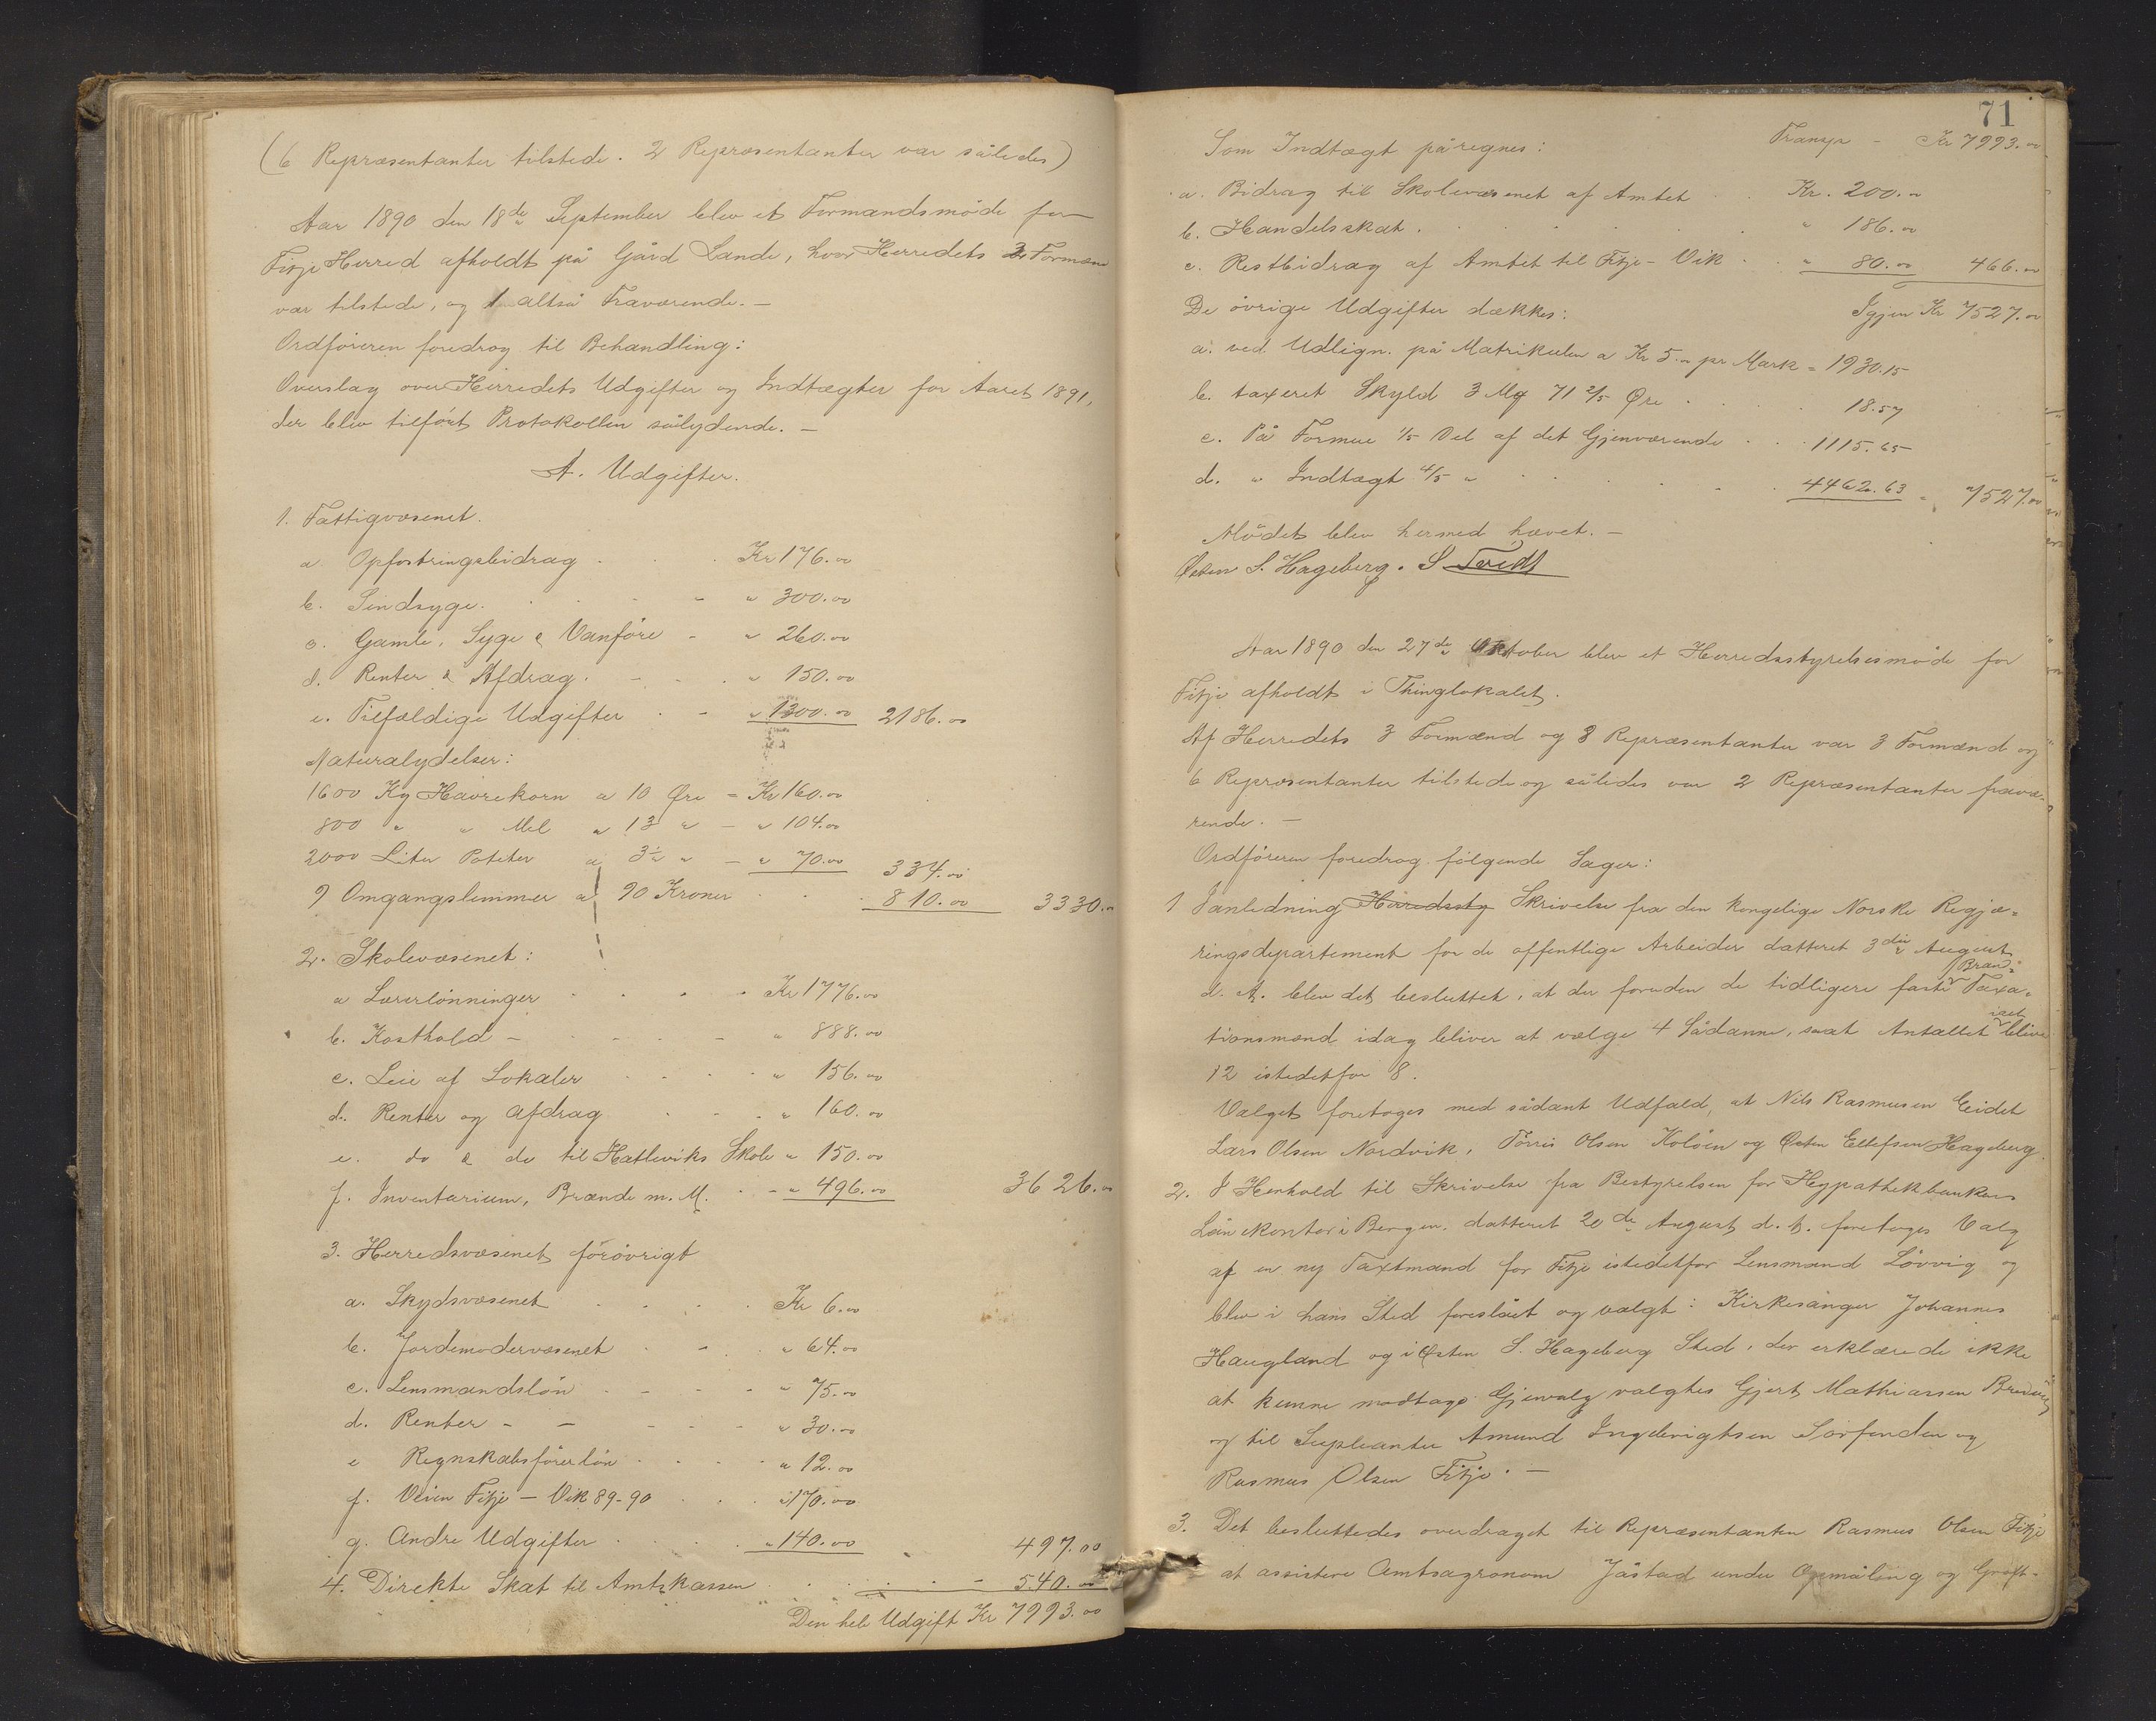 (6 Repræsentanter tilstede. 2 Repræsentanter var således)
Aar 1890 den 18de September blev et Formandsmöde for
Fitje Herred afholdt på Gård Lande, hvor Herredets 3 Formænd
var tilstede, og 1 altså Fraværende. –
Ordföreren foredrog til Behandling:
Overslag over Herredets Udgifter og Indtægter for Aaret 1891,
der blev tilfört Protokollen sålydende. –
A. Udgifter.
1. Fattigvæsenet.
a Opfostringsbidrag . . Kr 176.00
b. Sindsyge. . . - - " 300.00
c. Gamle, Syge & Vanföre - " 260.00
d. Renter & Afdrag. - - . " 150.00
e. Tilfældige Udgifter . - " 1300.00 2186.00
Naturalydelser:
1600 Kg Havrekorn a 10 Øre = Kr 160.00
800 " " Mel a 13 " – " 104.00
2000 Liter Poteter a 3½ " – " 70.00 334.00
9 Omgangslemmer a 90 Kroner . . . 810.00 3330.00
2. Skolevæsenet:
a Lærerlönninger . . . . Kr 1776.00
b. Kosthold – . . . - - " 888.00
c. Leie af Lokaler . . . . " 156.00
d. Renter og Afdrag . . . " 160.00
e. do & do til Hatleviks Skole " 150.00
f. Inventarium, Brænde m. M. . - " 496.00 3626.00
3. Herredsvæsenet forövrigt
a. Skydsvæsenet . . . . Kr 6.00
b. Jordemodervæsenet . - . " 64.00
c. Lensmandslön . - - - " 75.00
d. Renter - – - - - " 30.00
e Regnskabsförerlön . . . . " 12.00
f. Veien Fitje – Vik 89-90 . . . " 170.00
g. Andre Udgifter . . . . " 140.00 497.00
4. Direkte Skat til Amtskassen . . . . – 540.00
Den hele Udgift Kr 7993.00
71
Som Indtægt påregnes: Transp – Kr 7993.00
a. Bidrag til Skolevæsenet af Amtet . . Kr. 200.00
b. Handelsskat . . . . . . " 186.00
c. Restbidrag af Amtet til Fitje – Vik . . " 80.00 466.00
De övrige Udgifter dækkes: Igjen Kr 7527.00
a. ved Udlign. på Matrikulen a Kr 5.00 pr Mark = 1930.15
b. taxeret Skyld 3 Mg 71 2/5 Øre . . . . 18.57
c. På Formue 1/5 Del af det Gjenværende . . . 1115.65
d. " Indtægt 4/5 " . . . . . . 4462.63 = 7527.00
Mödet blev hermed hævet. –
Østen S. Hageberg. S Tvedt
Aar 1890 den 27de Oktober blev et Herredsstyrelsesmöde for
Fitje afholdt i Thinglokalet.
Af Herredets 3 Formænd og 8 Repræsentanter var 3 Formænd og
6 Repræsentanter tilstede og således var 2 Repræsentanter fravæ-
rende. –
Ordföreren foredrog fölgende Sager:
1 I anledning Herredssty Skrivelse fra den kongelige Norske Regje-
ringsdepartement for de offentlige Arbeider datteret 3die August
d. A. blev det besluttet, at der foruden de tidligere faste Bran- Taxa-
tionsmænd idag bliver at vælge 4 Sådanne, saaat Antallet ialt bliver
12 istedetfor 8.
Valget foretoges med sådant Udfald, at Nils Rasmusen Eidet
Lars Olsen Nordvik, Törris Olsen Kolöen og Østen Ellefsen Hageberg.
2. I Henhold til Skrivelse fra Bestyrelsen for Hypothekbankens
Lånekontor i Bergen, datteret 20de August d. A. foretoges Valg
af en ny Taxtmand for Fitje istedetfor Lensmand Lövvig og
blev i hans Sted foreslået og valgt: Kirkesanger Johannes
Haugland og i Østen S. Hageberg Sted, der erklærede ikke
at kunne modtage Gjenvalg valgtes Gjert Mathiassen Bredvig
og til Supleanter Amund Ingebrigtsen Sörfonden og
Rasmus Olsen Fitje. –
3. Det besluttedes overdraget til Repræsentanten Rasmus Olsen Fitje
at assistere Amtsagronom Jåstad under Opmåling og Gröft-